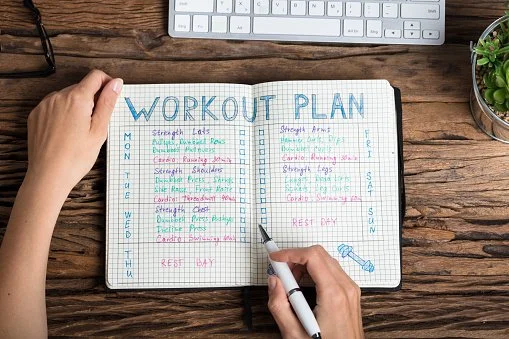 WORKOUT PLAN
MON
Strength Lats
Pulleys, Dumbbell Rows
Dumbbell Pullovers
Cardio: Running 50 min.
TUE
Strength Shoulders
Dumbbell Press, Shrugs
Side Raise, Front Raise
Cardio: Threadmill 50 min
WED
Strength Chest
Dumbbell Press, Pushups
Incline Press
Cardio: Swimming 50 min
THU
REST DAY
FRI
Strength Arms
Hammer Curls, Dips
Dumbbell
Cardio: Running 50 min
SAT
Strength Legs
Lunges
Squats, Leg Curls
Cardio: Swimming 50 min.
SUN
REST DAY